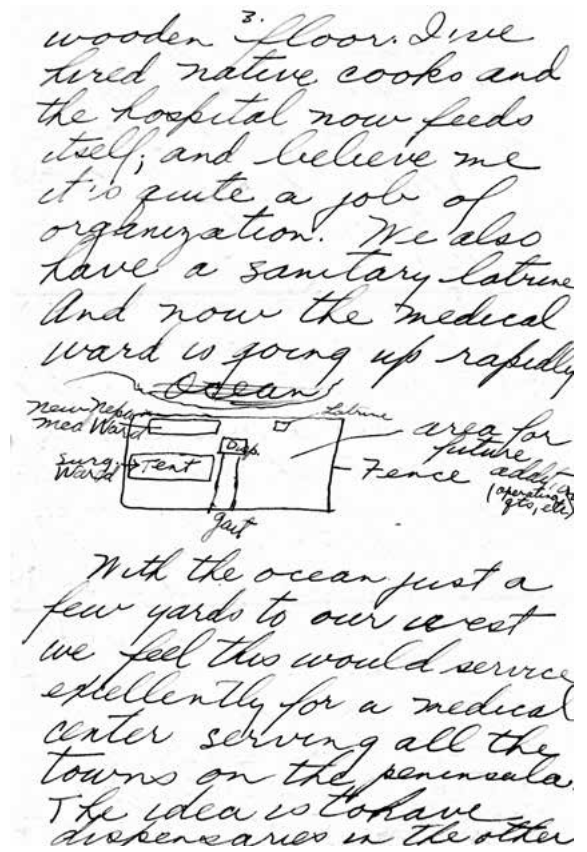 3.
wooden floor. I've
hired native cooks and
the hospital now feeds
itself, and believe me
it's quite a job of
organization. We also
have a sanitary latrine
And now the medical
ward is going up rapidly
Ocean
Latrine
new Nepa
Med Ward
Disp.
area for
future
addit
(operating
qts, etc)
Surg.
Ward
Tent
Fence
With the ocean just a
few yards to our west
we feel this would service
excellently for a medical
center serving all the
towns on the peninsula.
The idea is to have
dispensaries in the other